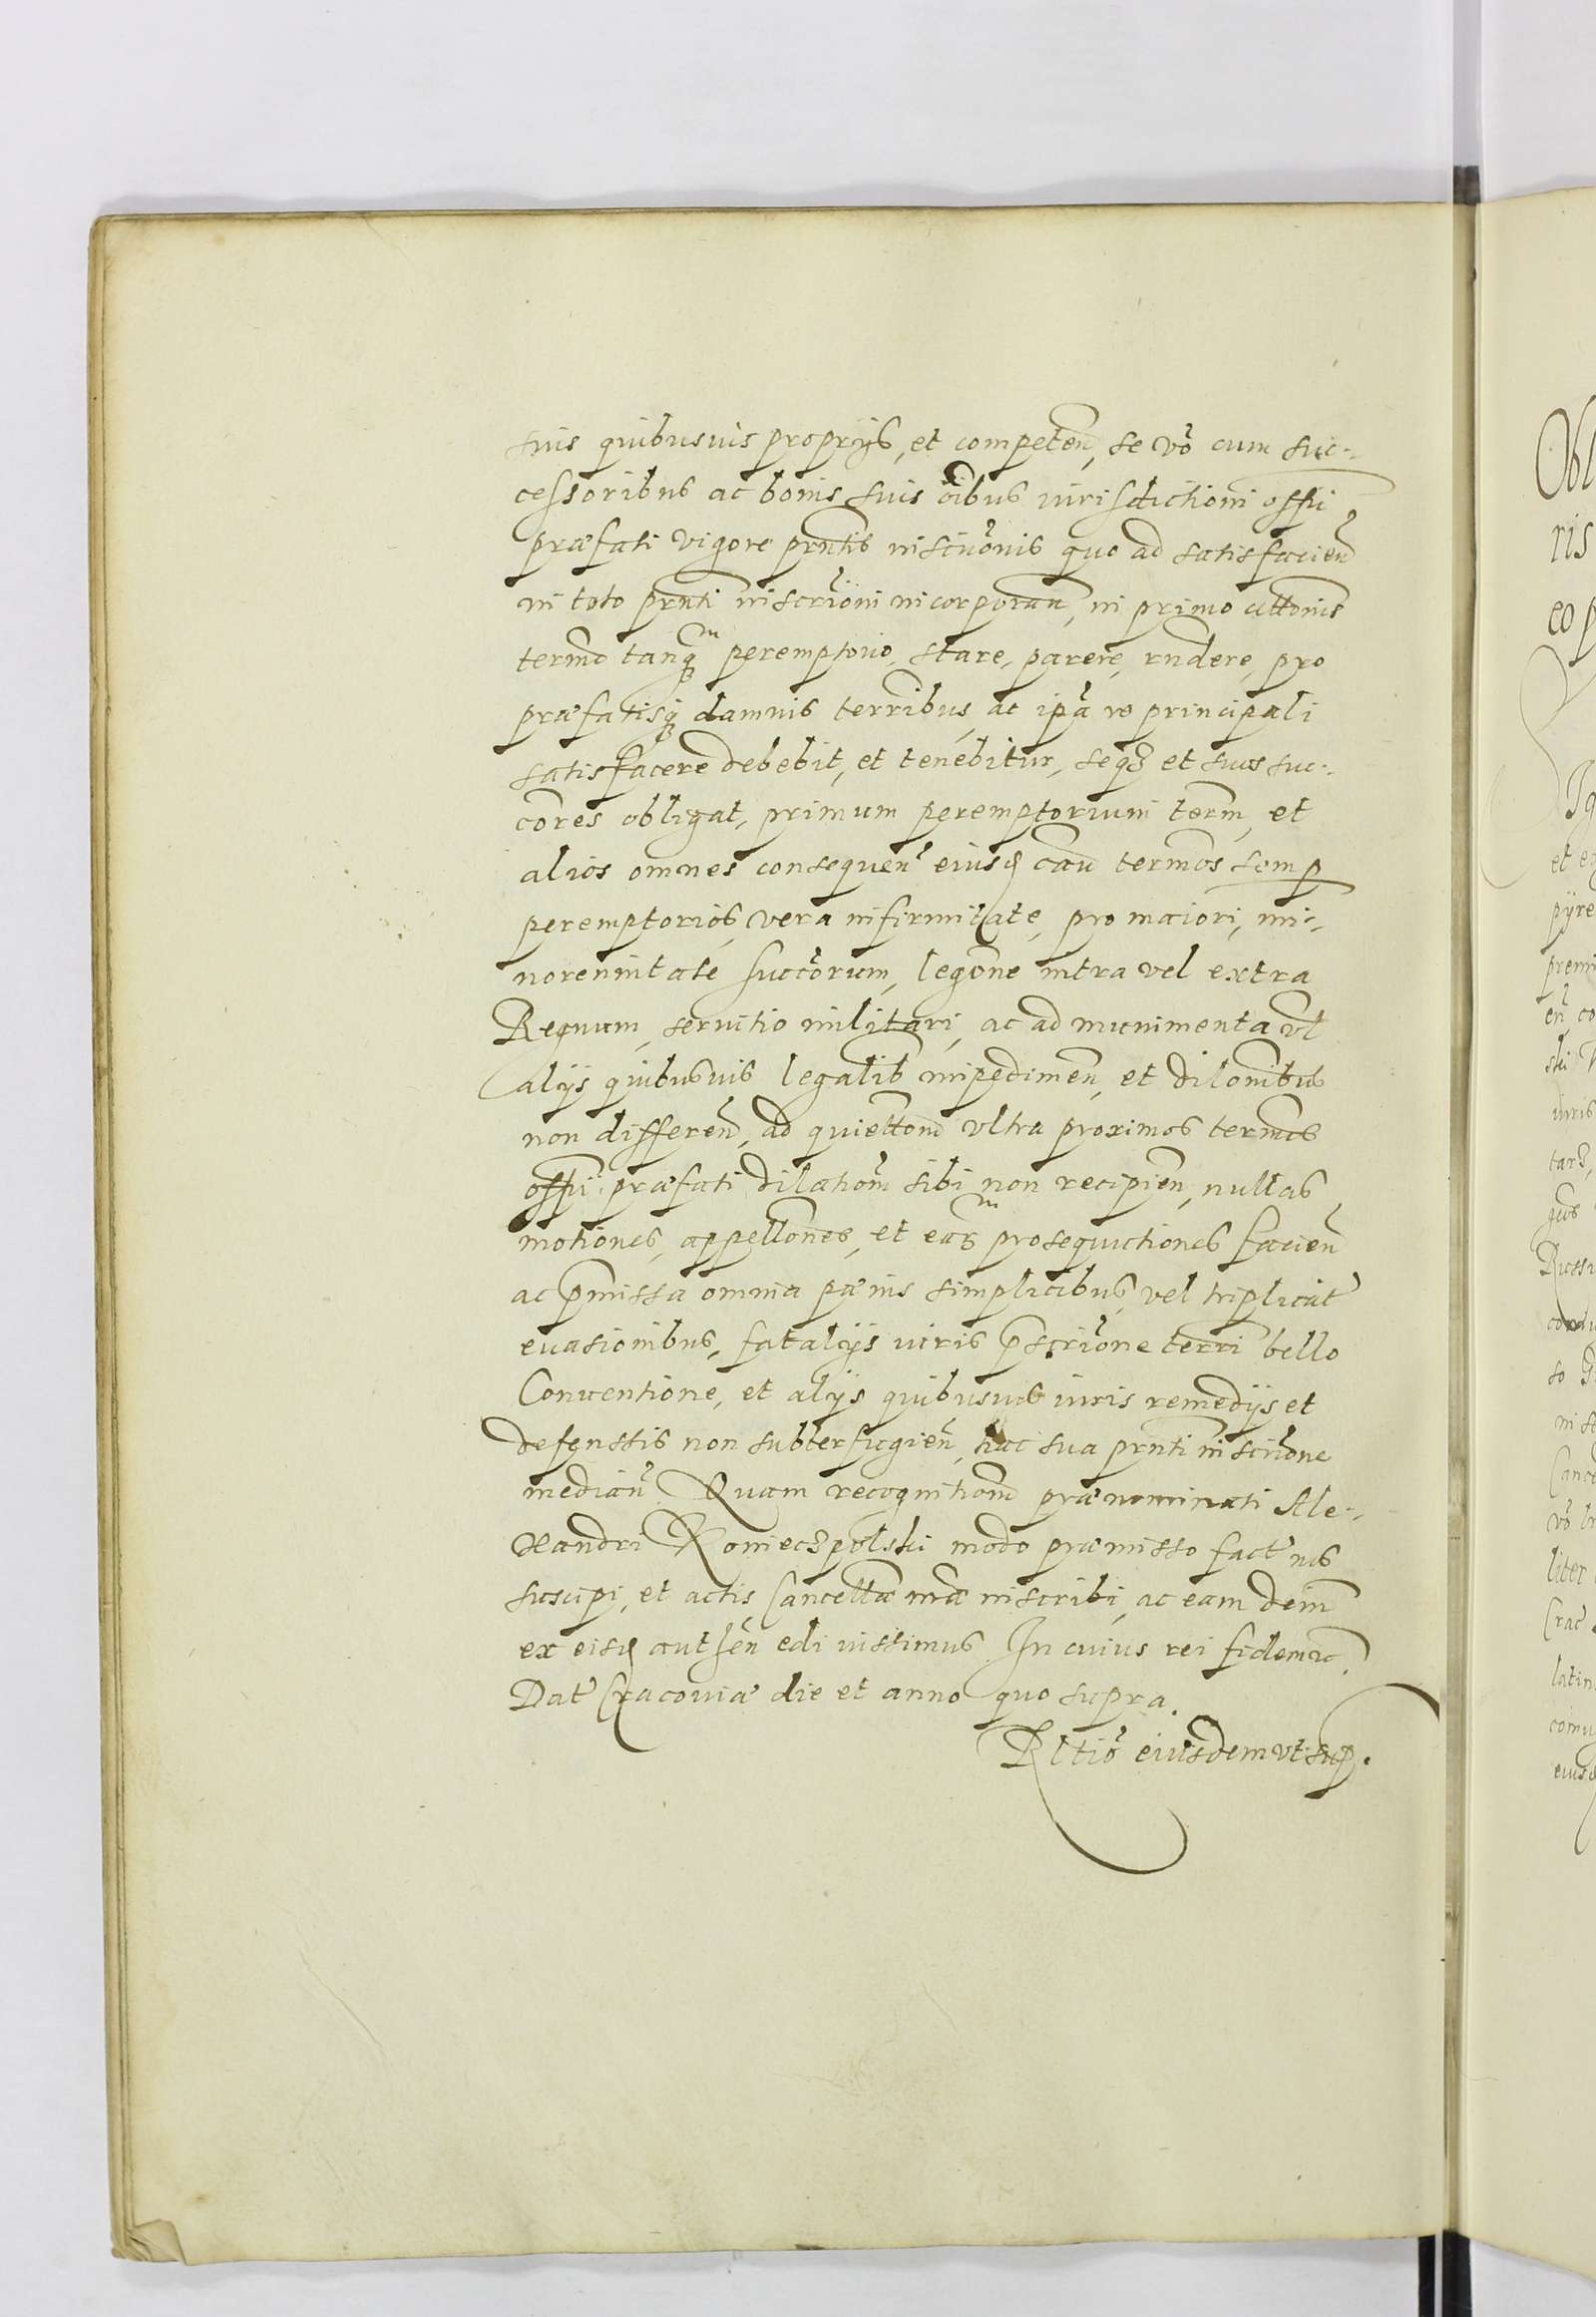 suis quibusuis proprijs, et competen̄, se vō cum suc-
cessoribus ac bonis suis oībus iurisdictioni offīi
præfati vigore prn̄tis inscrīonis quo ad satisfacien̄
in toto prn̄ti inscriōni incorporan̄, in primo cittonis
termō tanq̃ peremptorio, stare, parere, rn̄dere, pro
præfatisq̃ damnis terribus, ac ipā re principali
satisfacere debebit, et tenebitur, seqz et suos suc-
cōres obligat, primum peremptorium term̄, et
alios omnes consequen̄ eiusd cau termōs semp
peremptorios, vera infirmitate, pro maiori, mi-
norennitate succōrum, legōne intra vel extra
Regnum, seruitio militari, ac ad munimenta vl
alijs quibusuis legalib impedimen̄, et dilonībus
non differen̄, ad quiettonē vltra proximos termōs
offīi præfati dilationē sibi non recipien̄, nullas
motiones, appellōnes, et earz prosequutiones facien̄
ac pmissa omnia pænis simplicibus, vel triplicat
euasionibus, fatalijs iuris pscriōne terri bello
Conuentione, et alijs quibusuis iuris remedijs et
defenssis non subterfugien̄, hac sua prn̄ti inscrīone
median̄ Quam recognitionē prænominati Ale-
xandri Konieczpolski modo præmisso fact nos
suscipi, et actis Cancellæ nr̄æ inscribi, ac eam dem̄
ex eisd authen̄ edi iussimus. In cuius rei fidem etc.
Dat Cracouiæ die et anno quo supra.
Rltiō eiusdem vt sup.
Obl
ris
eo p
et eo
pyre
premi
en̄ co
ski
iuris
tarz,
Russi
condu
so
in se
Canc
vō
liter
Crac
latin
comu
eiusd